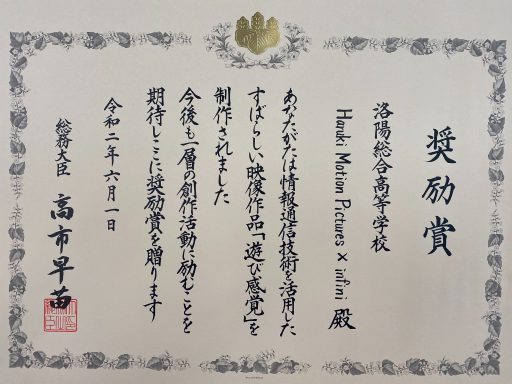 奨励賞
洛陽総合高等学校
Haruki Motion Pictures × infini 殿
あなたがたは情報通信技術を活用した
すばらしい映像作品「遊び感覚」を
制作されました
今後も一層の創作活動に励むことを
期待しここに奨励賞を贈ります
令和二年六月一日
総務大臣 高市早苗